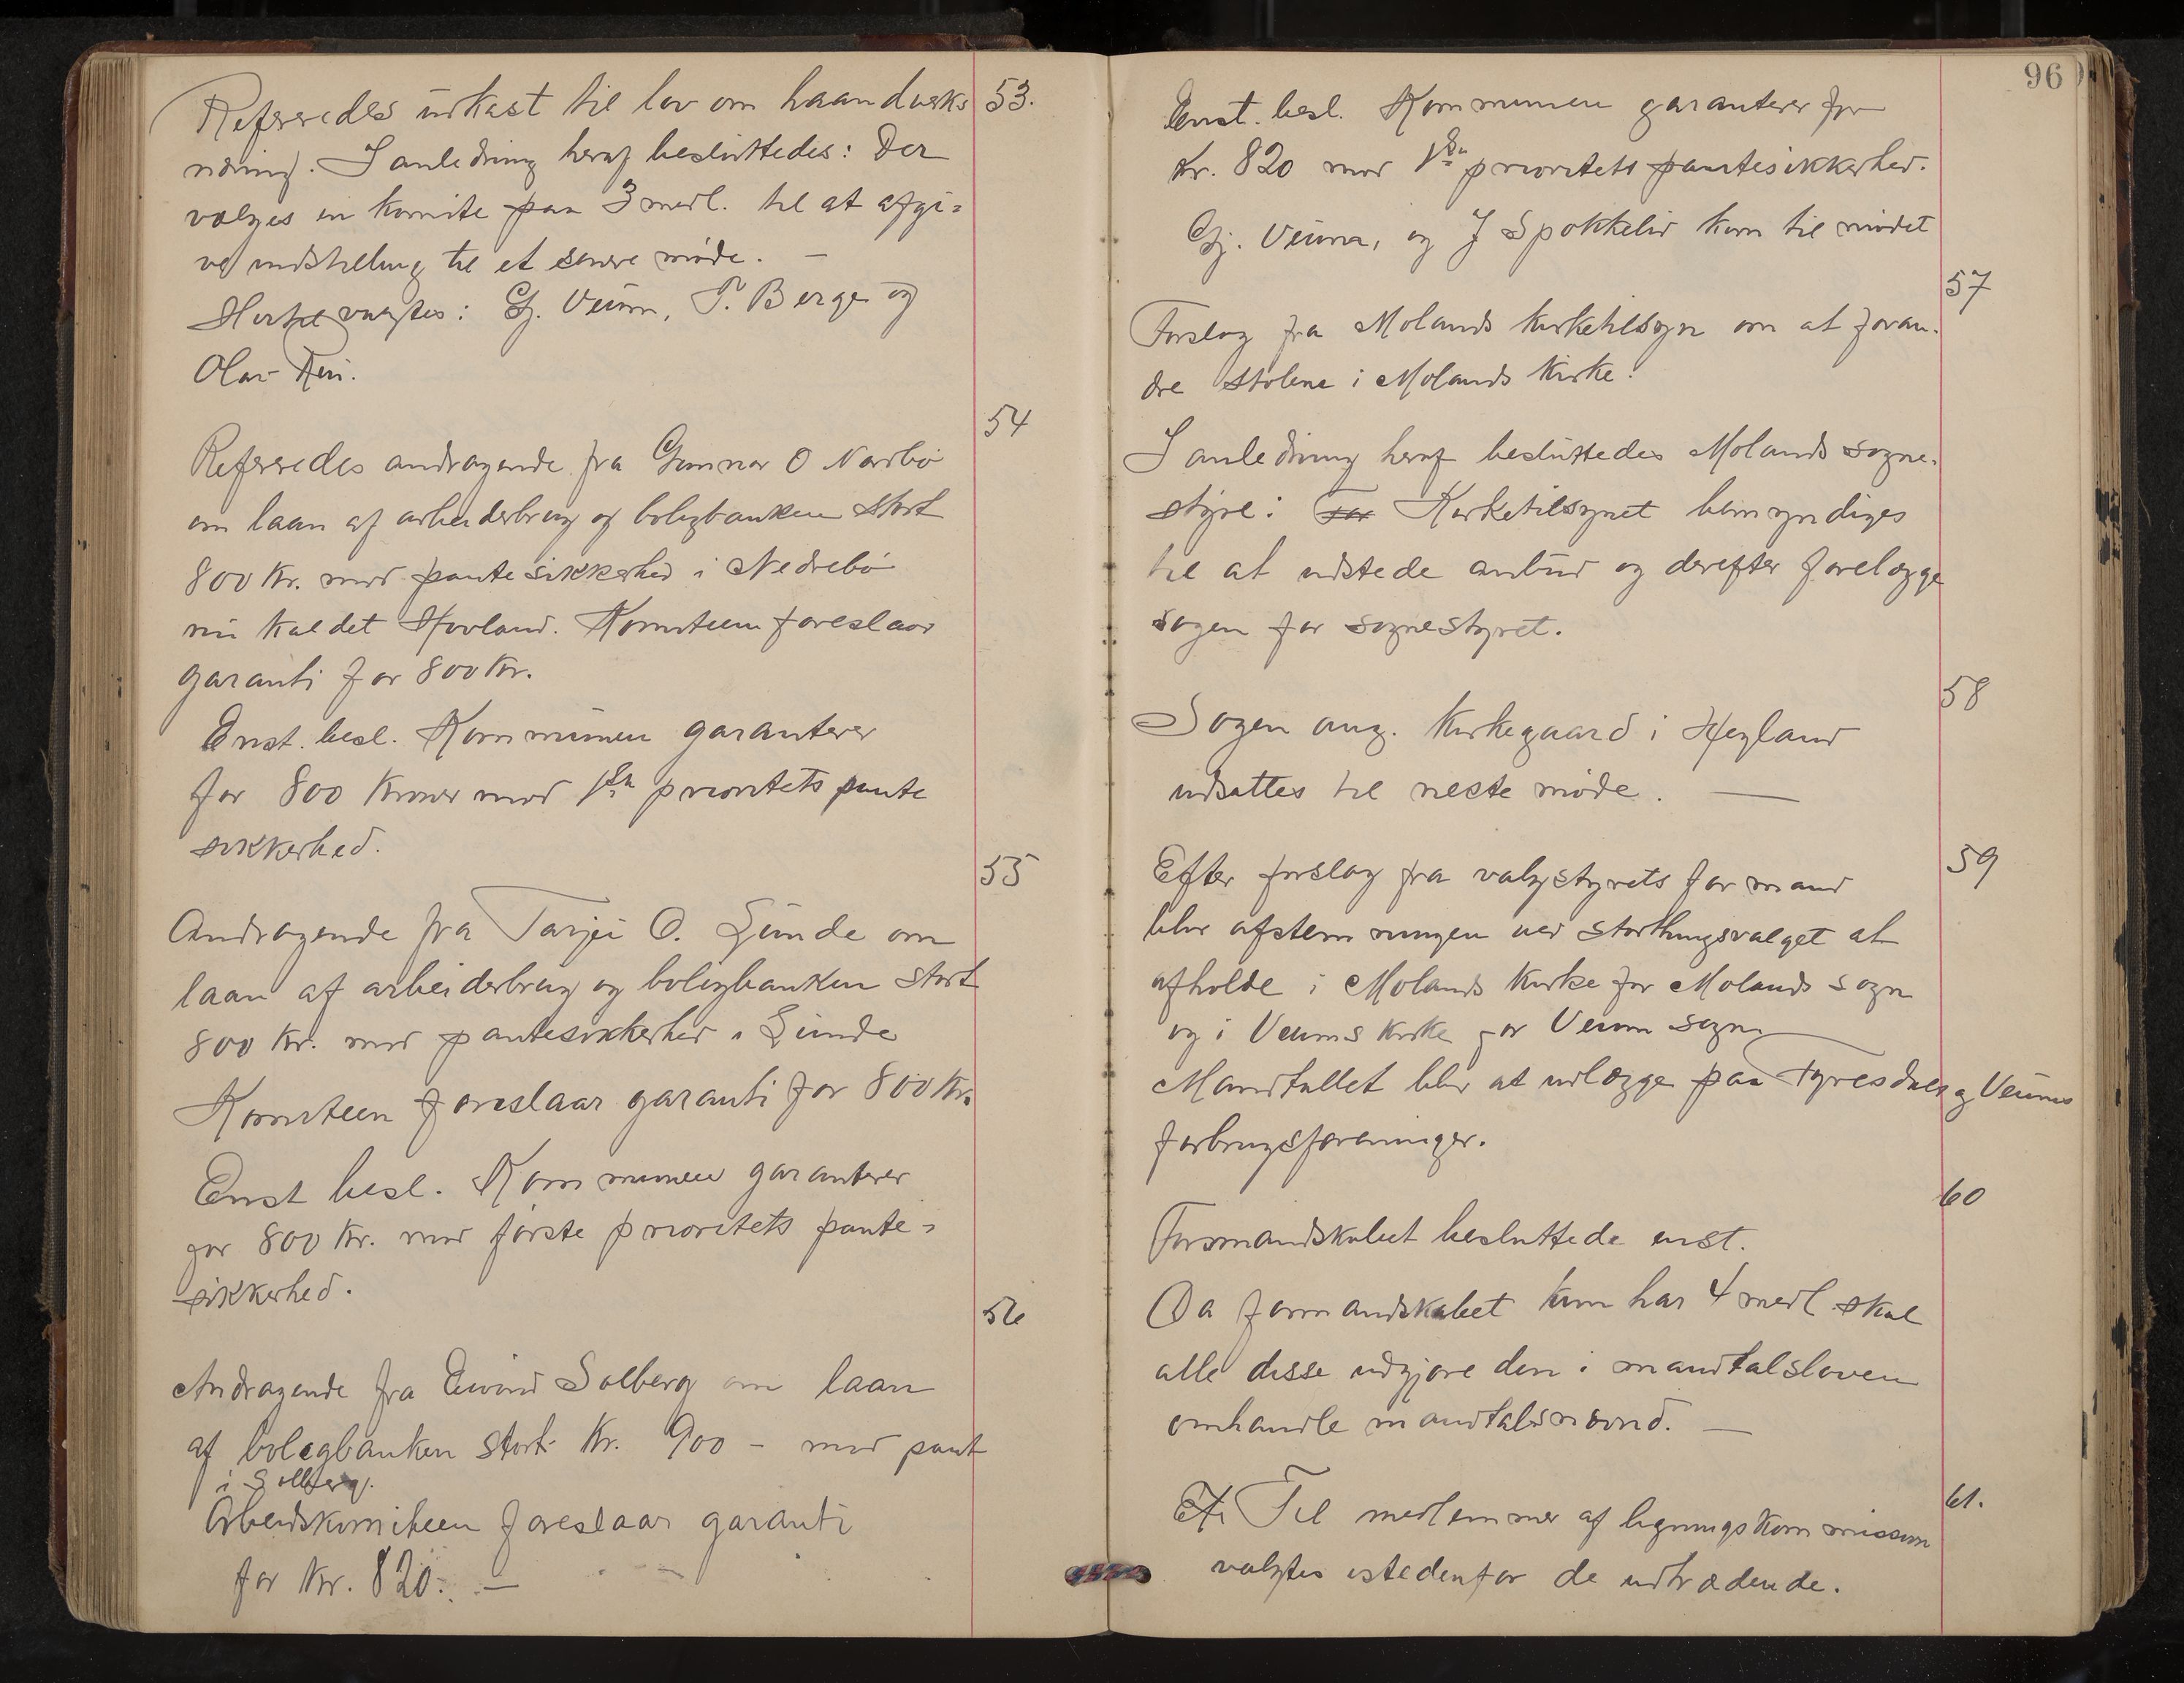 Refereredes utkast til lov om haandverks 53.
næring. I anledning heraf besluttedes: Der
vælges en komite paa 3 medl. til at afgi=
ve indstilling til et senere møde. —
Hertil valgtes: Gj. Veum, T. Berge og
Olav
54
Refereredes andragende fra Gunnar O Nordbø
om laan af arbeiderbrug og boligbanken stort
800 Kr. mod pantesikkerhed i Nedrebø
nu kaldet Hovland. Komiteen foreslaar
garanti for 800 Kr.
Enst. besl. Kommunen garanterer
for 800 Kroner mod 1ste prioritets pante
sikkerhed.
55
Andragende fra Tarjei O. Lunde om
laan af arbeiderbrug og boligbanken stort
800 kr. mod pantesikkerhed i Lunde
Komiteen foreslaar garanti for 800 Kr.
Enst besl. Kommunen garanterer
for 800 Kr. mod første prioritets pante=
sikkerhed.
56
Andragende fra Eivind Solberg om laan
af boligbanken stort Kr. 900 - mod pant
i Solberg.
Arbeidskomiteen foreslaar garanti
for Kr. 820. —
96
Enst. besl. Kommunen garanterer for
Kr. 820 mod 1ste prioritets pantesikkerhed.
Gj. Veum, og J Spokkeli kom til mødet
57
Forslag fra Molands kirketilsyn om at foran-
dre stolene i Molands kirke.
I anledning heraf besluttedes Molands sogne-
styre: For Kirketilsynet bemyndiges
til at udstede anbud og derefter forelægge
sagen for sognestyret.
58
Sagen ang. Kirkegaard i Høgland
udsattes til neste møde. —
59
Efter forslag fra valgstyrets formand
blir afstemningen ved storthingsvalget at
afholde i Molands kirke for Molands sogn
og i Veums kirke for Veum sogn
Mandtallet blir at udlægge paa Tyresdals og Veums
forbrugsforeninger.
60
Formandskabet besluttede enst.
Da formandskabet kun har 4 medl skal
alle disse udgjøre den i mandtalsloven
omhandle mandtalsnævnd. —
61.
Til medlemmer af ligningskommissionen
valgtes istedenfor de udtrædende.